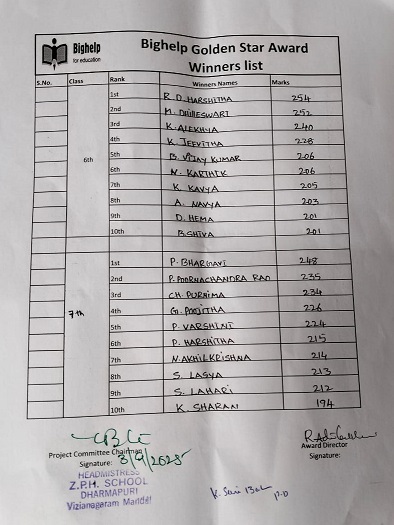 Bighelp
for education
Bighelp Golden Star Award
Winners list
S.No. Class Rank Winners Names Marks
6th
1st R.D. HARSHITHA 254
2nd M. DHILLESWARI 252
3rd K. ALEKHYA 240
4th K. JEEVITHA 228
5th B. VIJAY KUMAR 206
6th N. KARTHIK 206
7th K KAVYA 205
8th A. NAVYA 203
9th D. HEMA 201
10th B.SHIVA 201
7th
1st P. BHARGAVI 248
2nd P. POORNACHANDRA RAO 235
3rd CH. PURNIMA 234
4th G. POOJITHA 226
5th P VARSHINI 224
6th P. HARSHITHA 215
7th N. AKHIL KRISHNA 214
8th S. LASYA 213
9th S. LAHARI 212
10th K SHARAN 194
Project Committee Chairman Award Director
Signature: 3/9/2025 Signature:
HEADMISTRESS
Z.P.H. SCHOOL
DHARMAPURI
Vizianagaram Mandal
K. Sai P.D